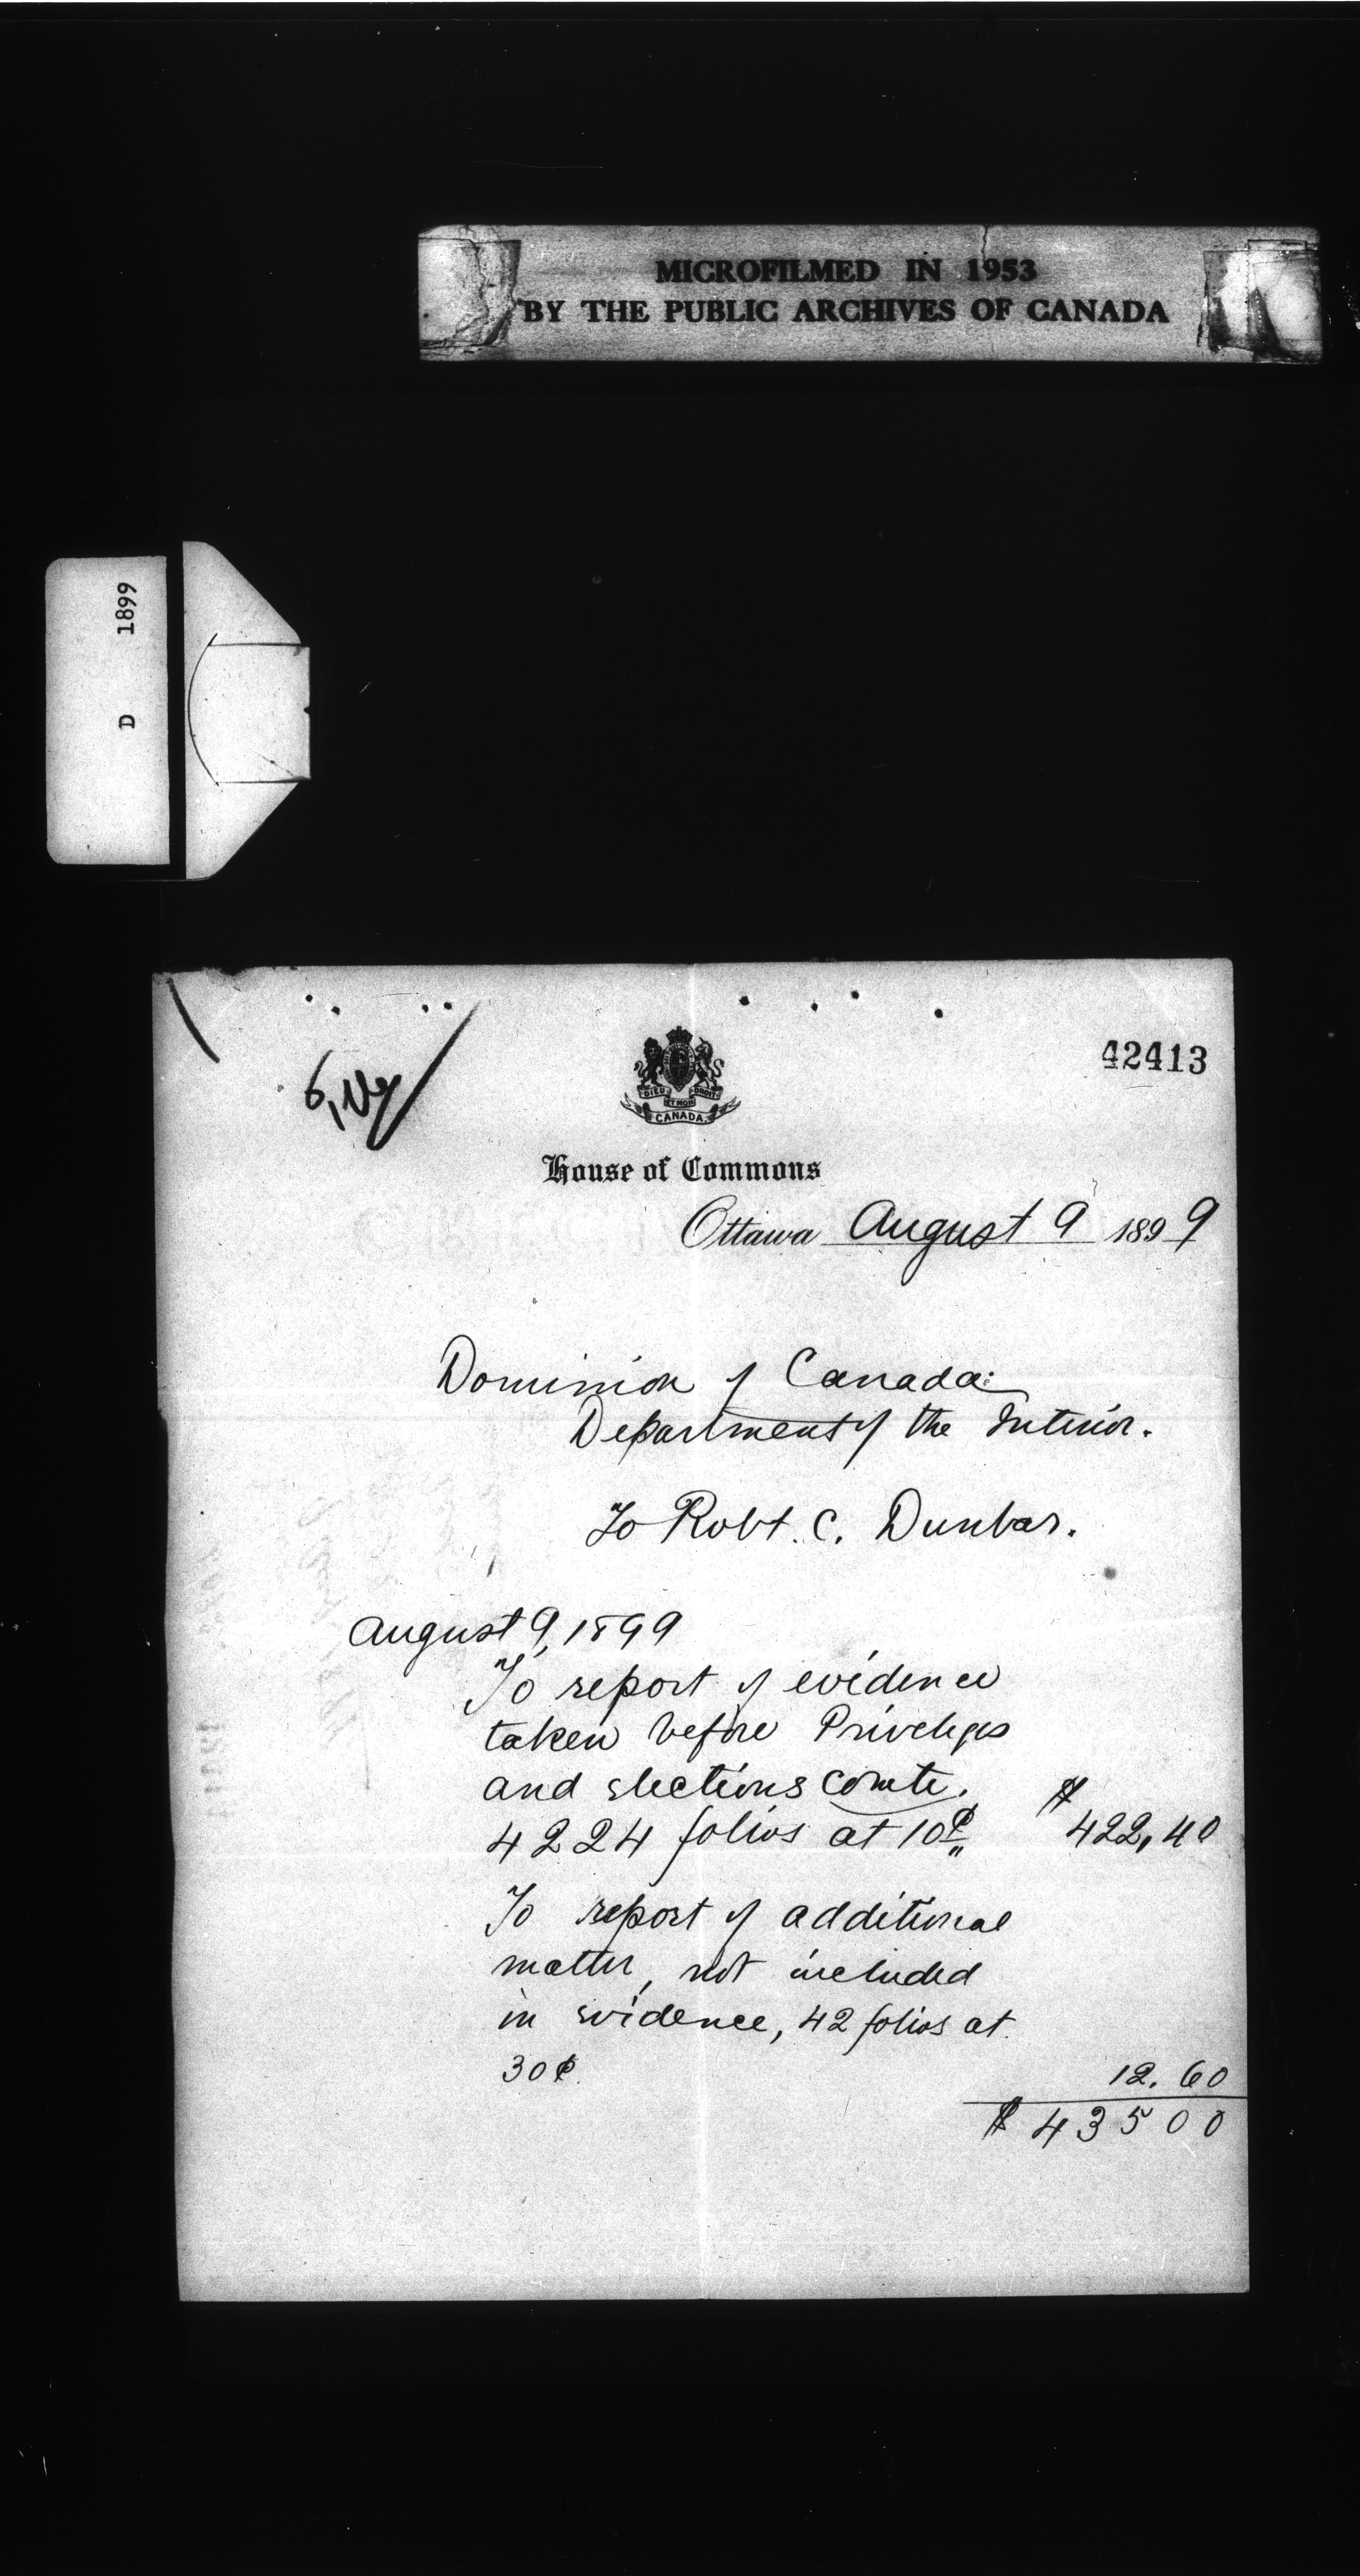 MICROFILMED IN 1953
BY THE PUBLIC ARCHIVES OF CANADA
D 1899
42413
DIEU ET MON DROIT
CANADA.
House of Commons
Ottawa August 9 1899
Dominion of Canada:
Department of the Interior.
To Robt. C. Dunbar.
August 9, 1899
To report of evidence
taken before Priveleges
and elections comte.
4224 folios at 10¢ $ 422,40
To report of additional
matter, not included
in evidence, 42 folios at
30¢. 12.60
$ 435 00